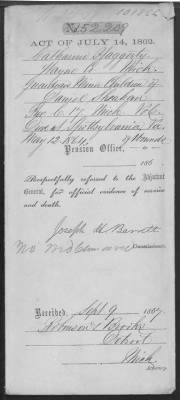 No 52,209
ACT OF JULY 14, 1862.
Catharine Haggerty
Wayne Co Mich.
Guardian Minor Children of
Daniel Sheahan
Co. C 17" Mich Vols.
Died at Spottsylvania Va
May 12. 1864. of Wounds
Pension Office,
186
Respectfully referred to the Adjutant
General, for official evidence of service
and death.
Joseph H Barrett
Commissioner.
Received, Sept 9 1864
& Brooks
Detroit
Mich.
Attorney.